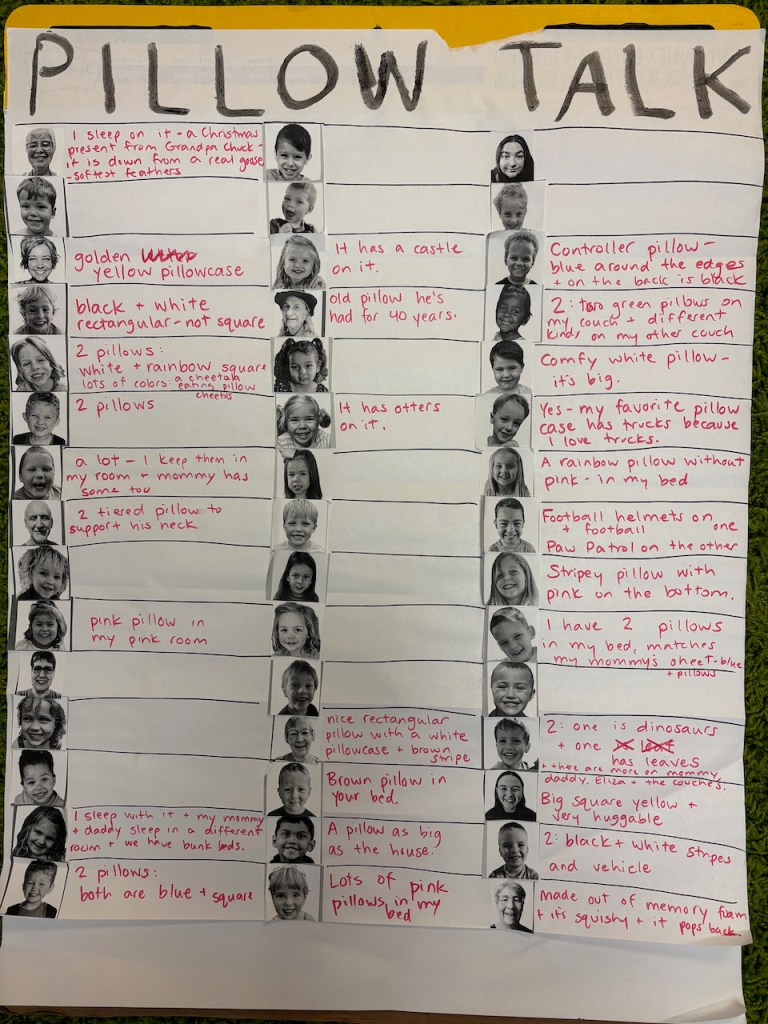 PILLOW TALK
I sleep on it - a Christmas
present from Grandpa Chuck -
it is down from a real goose
- softest feathers
golden
yellow pillowcase
black + white
rectangular - not square
2 pillows:
white + rainbow square
lots of colors: a cheetah
eating pillow
cheetos
2 pillows
a lot - I keep them in
my room + mommy has
some too
2 tiered pillow to
support his neck
pink pillow in
my pink room
I sleep with it + my mommy
+ daddy sleep in a different
room + we have bunk beds.
2 pillows:
both are blue + square
It has a castle
on it.
old pillow he's
had for 40 years.
It has otters
on it.
nice rectangular
pillow with a white
pillowcase + brown
stripe
Brown pillow in
your bed.
A pillow as big
as the house.
Lots of pink
pillows in my
bed
Controller pillow -
blue around the edges
+ on the back is black
2: two green pillows on
my couch + different
kinds on my other couch
Comfy white pillow -
it's big.
Yes - my favorite pillow
case has trucks because
I love trucks.
A rainbow pillow without
pink - in my bed
Football helmets on one
+ football
Paw Patrol on the other
Stripey pillow with
pink on the bottom.
I have 2 pillows
in my bed, matches
my mommy's sheet - blue
+ pillows
2: one is dinosaurs
+ one
has leaves
+ there are more on mommy,
daddy, Eliza + the couches.
Big square yellow +
very huggable
2: black + white stripes
and vehicle
made out of memory foam
+ it's squishy + it pops back.